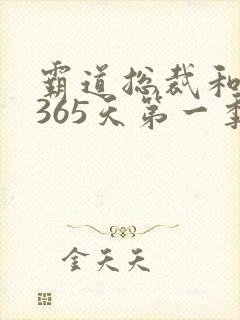 霸道总裁和
365天第一季
金天天